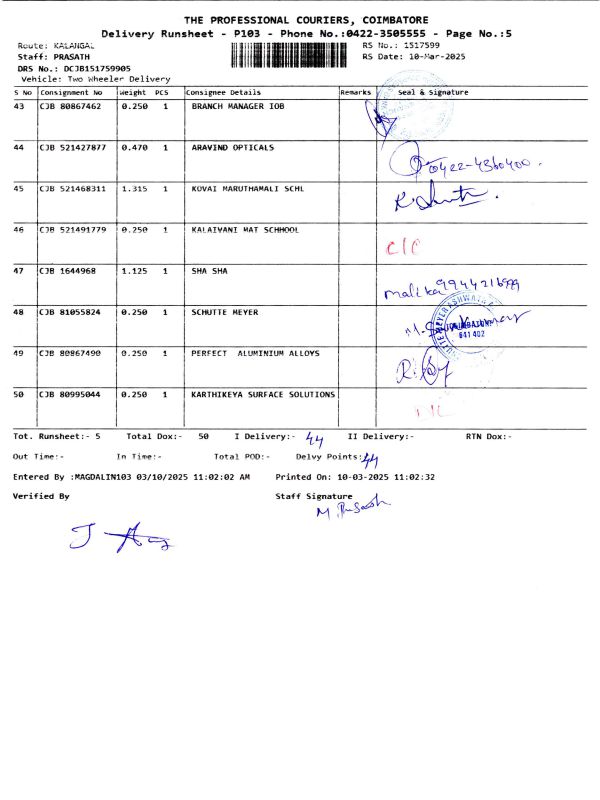 THE PROFESSIONAL COURIERS, COIMBATORE
Delivery Runsheet - P103 - Phone No.:0422-3505555 - Page No.:5
Route: KALANGAL RS No.: 1517599
Staff: PRASATH RS Date: 10-Mar-2025
DRS No.: DCJB151759905
Vehicle: Two Wheeler Delivery
S No Consignment No Weight PCS Consignee Details Remarks Seal & Signature
43 CJB 80867462 0.250 1 BRANCH MANAGER IOB
44 CJB 521427877 0.470 1 ARAVIND OPTICALS 0422-4360400.
45 CJB 521468311 1.315 1 KOVAI MARUTHAMALI SCHL
46 CJB 521491779 0.250 1 KALAIVANI MAT SCHHOOL C/C
47 CJB 1644968 1.125 1 SHA SHA malika 9944216999
48 CJB 81055824 0.250 1 SCHUTTE MEYER 641 402
49 CJB 80867490 0.250 1 PERFECT ALUMINIUM ALLOYS
50 CJB 80995044 0.250 1 KARTHIKEYA SURFACE SOLUTIONS
Tot. Runsheet:- 5 Total Dox:- 50 I Delivery:- 44 II Delivery:- RTN Dox:-
Out Time:- In Time:- Total POD:- Delvy Points:- 44
Entered By :MAGDALIN103 03/10/2025 11:02:02 AM Printed On: 10-03-2025 11:02:32
Verified By Staff Signature
M. Prasath